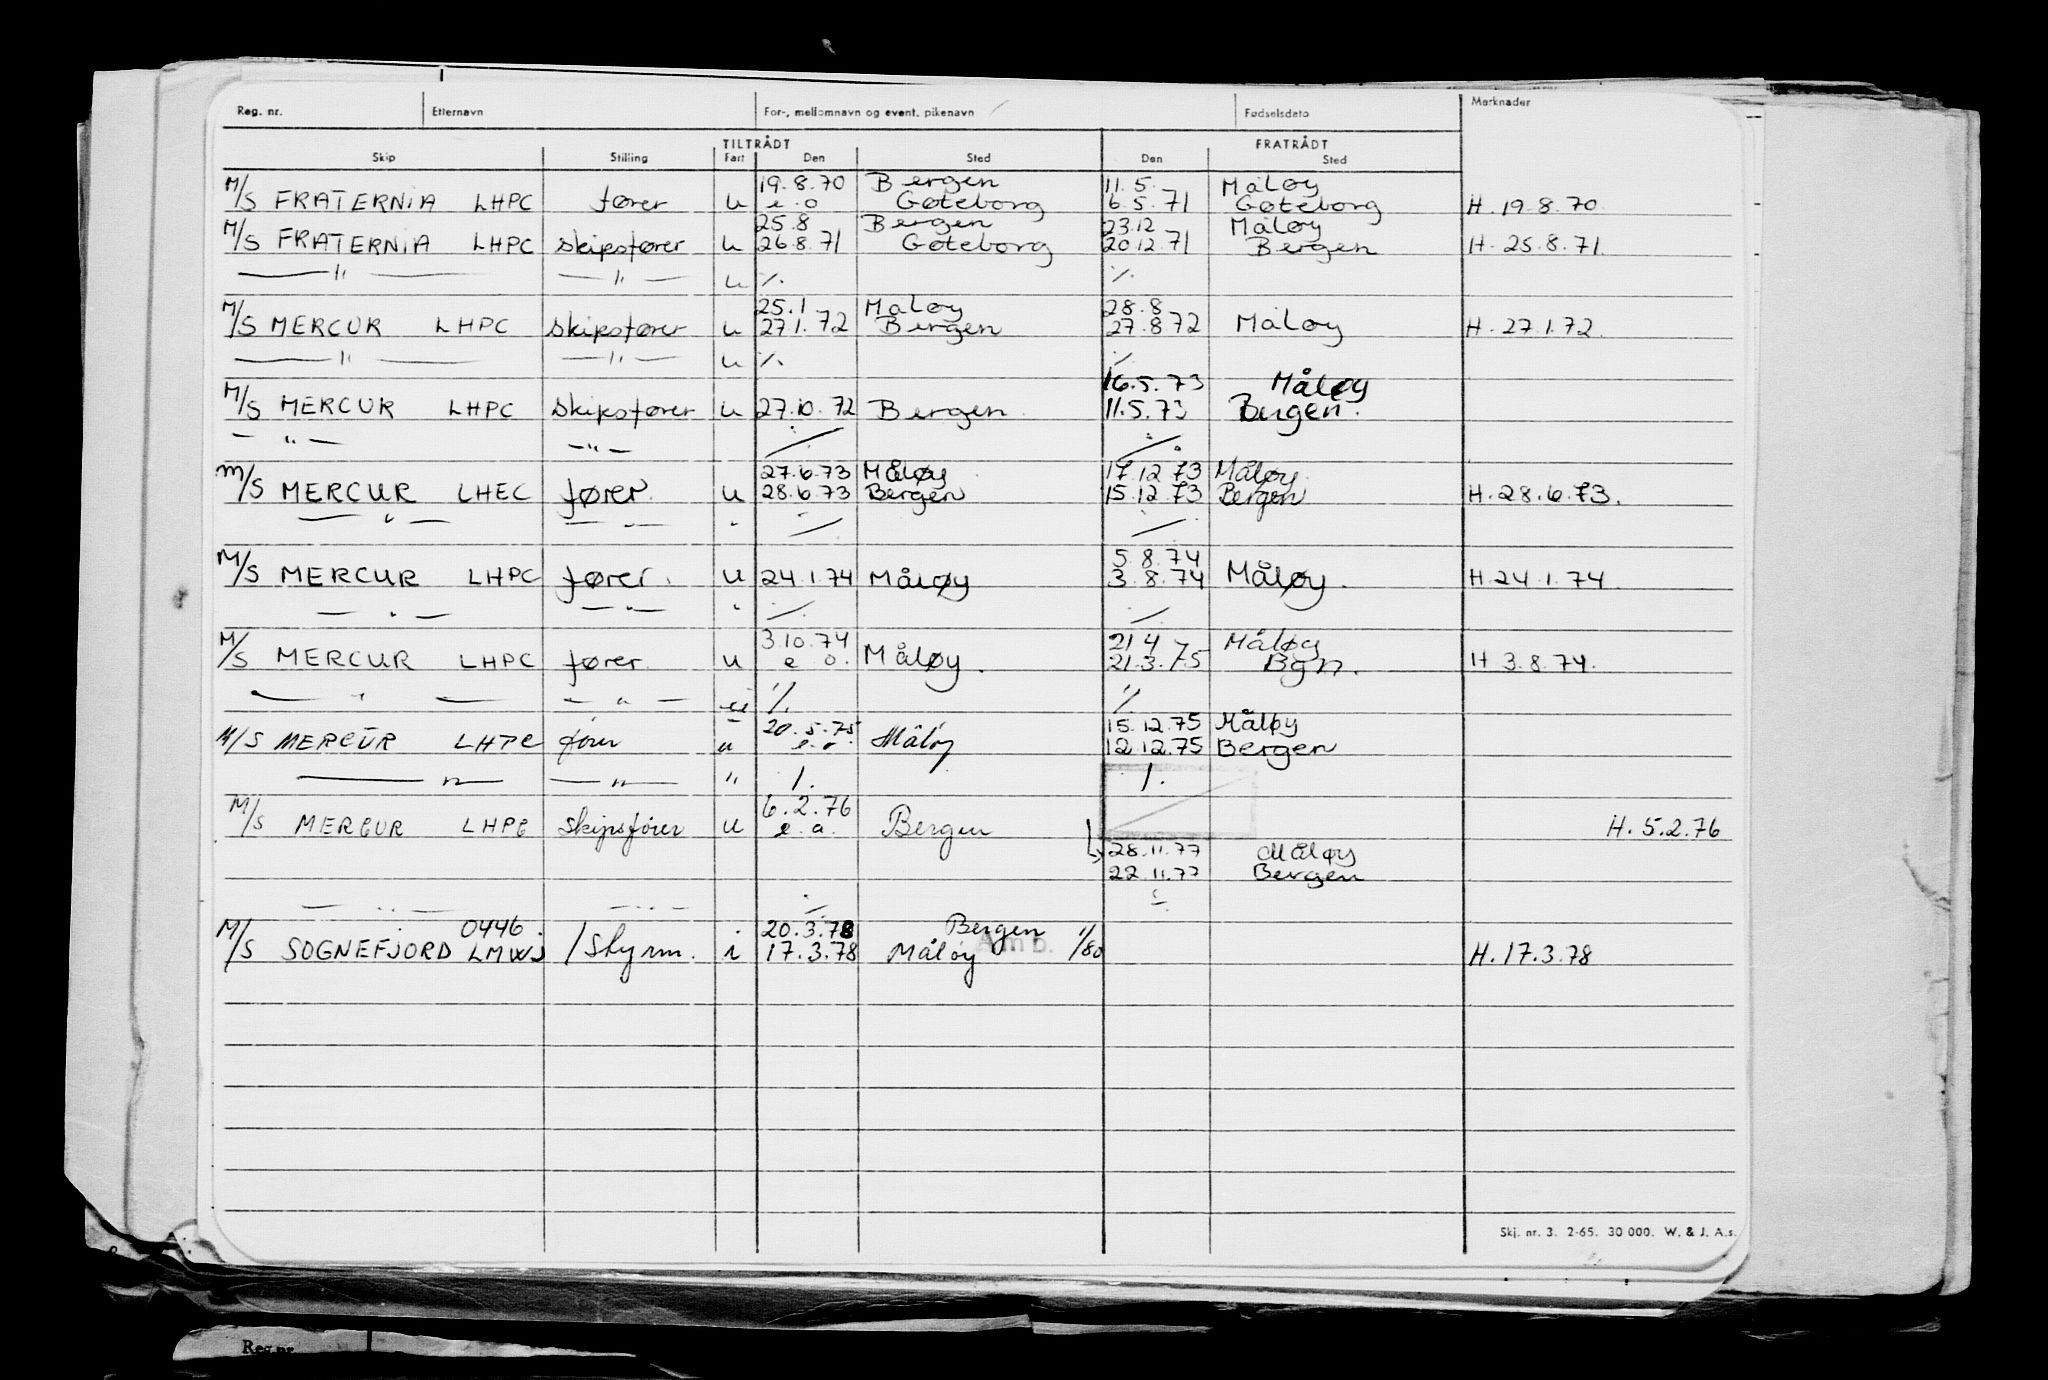 Reg. nr. Etternavn For-, mellomnavn og event. pikenavn Fødselsdato Merknader
TILTRÅDT FRATRÅDT
Skip Stilling Fart Den Sted Den Sted
19.8.70 Bergen 11.5. Måløy
M/S FRATERNIA LHPC fører u e.o Gøteborg 6.5.71 Gøteborg H. 19.8.70.
25.8 Bergen 23.12 Måløy
M/S FRATERNIA LHPC skipsfører u 26.8.71 Gøteborg 20.12.71 Bergen H. 25.8.71.
— " — — " — u ./. ./.
25.1 Måløy 28.8
M/S MERCUR LHPC skipsfører u 27.1.72 Bergen 27.8.72 Måløy H. 27.1.72.
— " — — " — u ./. ./.
16.5.73 Måløy
M/S MERCUR LHPC skipsfører u 27.10.72 Bergen 11.5.73 Bergen.
— " — — " — ./. ./.
27.6.73 Måløy 17.12.73 Måløy
M/S MERCUR LHEC fører u 28.6.73 Bergen 15.12.73 Bergen H. 28.6.73.
— " — — " — " ./. ./.
5.8.74
M/S MERCUR LHPC fører. u 24.1.74 Måløy 3.8.74 Måløy. H. 24.1.74.
— " — — " — " ./. ./.
3.10.74 21.4 Måløy
M/S MERCUR LHPC fører u e.o. Måløy. 21.3.75 Bgn. H 3.8.74.
— " — — " — u ./. ./.
20.5.75 15.12.75 Måløy
M/S MERCUR LHPC fører u e.o. Måløy 12.12.75 Bergen
— " — — " — " /. /.
6.2.76
M/S MERCUR LHPC skipsfører u e.o. Bergen H. 5.2.76
28.11.77 Måløy
22.11.77 Bergen
— " — — " — ./. ./.
0446. 20.3.78 Bergen
M/S SOGNEFJORD LMWJ 1 Styrm. i 17.3.78 Måløy Amb. 1/1/80 H. 17.3.78
Skj. nr. 3. 2-65. 30 000. W. & J. A.s.
Reg.nr.